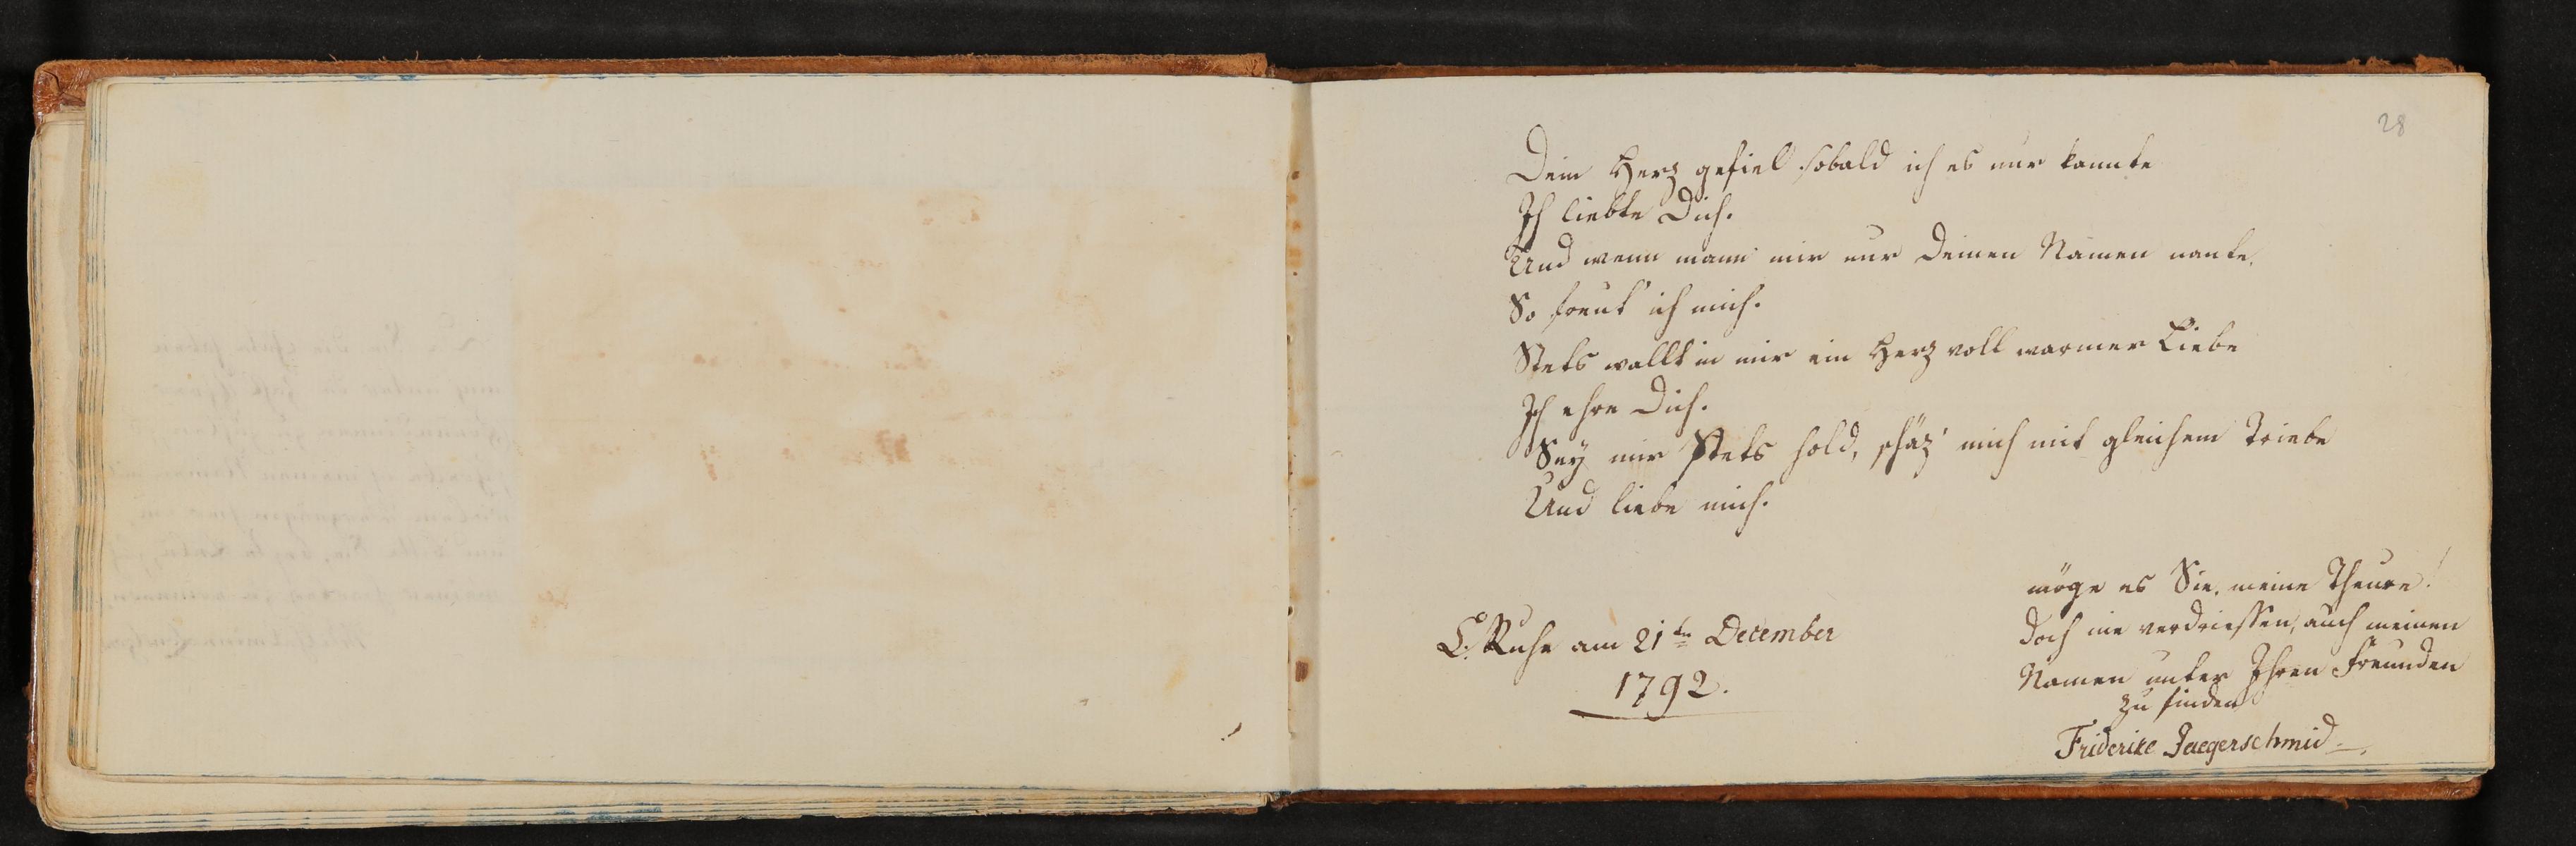 28
Dein Herz gefiel sobald ich es nur kannte
Ich liebte Dich.
Und wenn mann mir nur Deinen Namen nante.
So freut' ich mich.
Stets wallt in mir ein Herz voll warmer Liebe
Ich ehre Dich.
Sey mir stets hold, schäz' mich mit gleichem Triebe
Und liebe mich.
C. Ruhe am 21ten December
1792.
möge es Sie, meine Theure!
doch nie verdriessen, auch meinen
Namen unter Ihren Freunden
zu finden
Friderike Jaegerschmid.